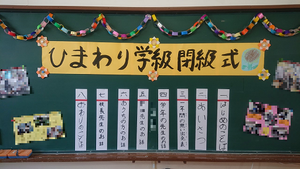 ひまわり学級閉級式
一 はじめのことば
二 あいさつ
三 一年間の思い出
四 学年の先生のお話
五
六 おうちの方のお話
七 校長先生のお話
八 おわりのことば